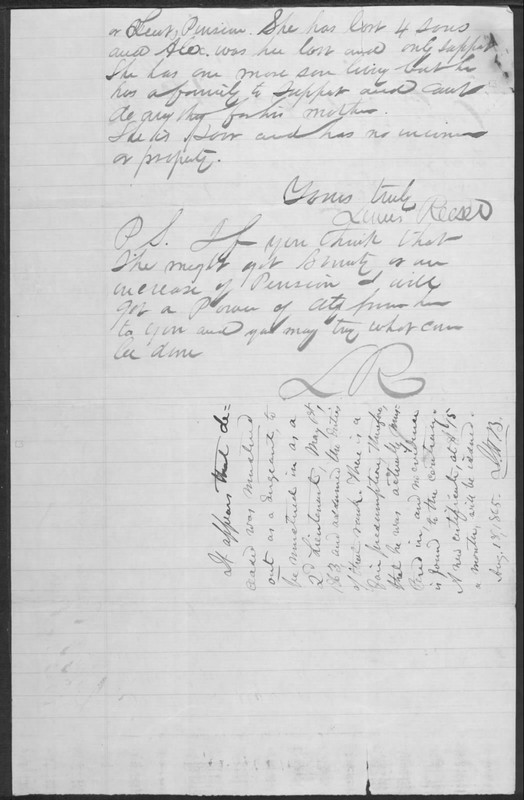 or Lieut, Pension. She has lost 4 sons
and Alex. was her last and only support
She has one more son living but he
has a family to support and cant
do any thing for his mother.
She is Poor and has no income
or property.
Yours truly
Lewis Reeser
P S. If you think that
She might get Bounty or an
increase of Pension I will
get a Power of Atty from her
to you and you may try what can
be done
L R
It appears that de-
ceased was mustered
out as a sergeant, to
be mustered in as a
2d Lieutenant, May 1st,
1863, and assumed the duties
of that rank. There is a
fair presumption, therefore,
that he was actually mus-
tered in, and no evidence
is found to the contrary.
A new certificate, at $15
a month, will be issued.
Aug. 18, 1865.